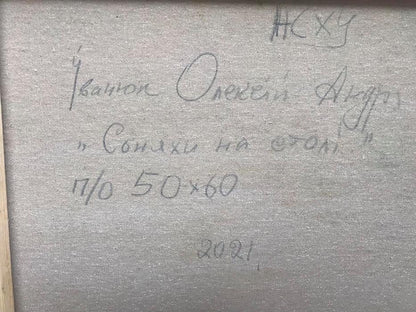 НСХУ
Іванюк Олексій Андр
„Соняхи на столі"
п/о 50х60
2021,